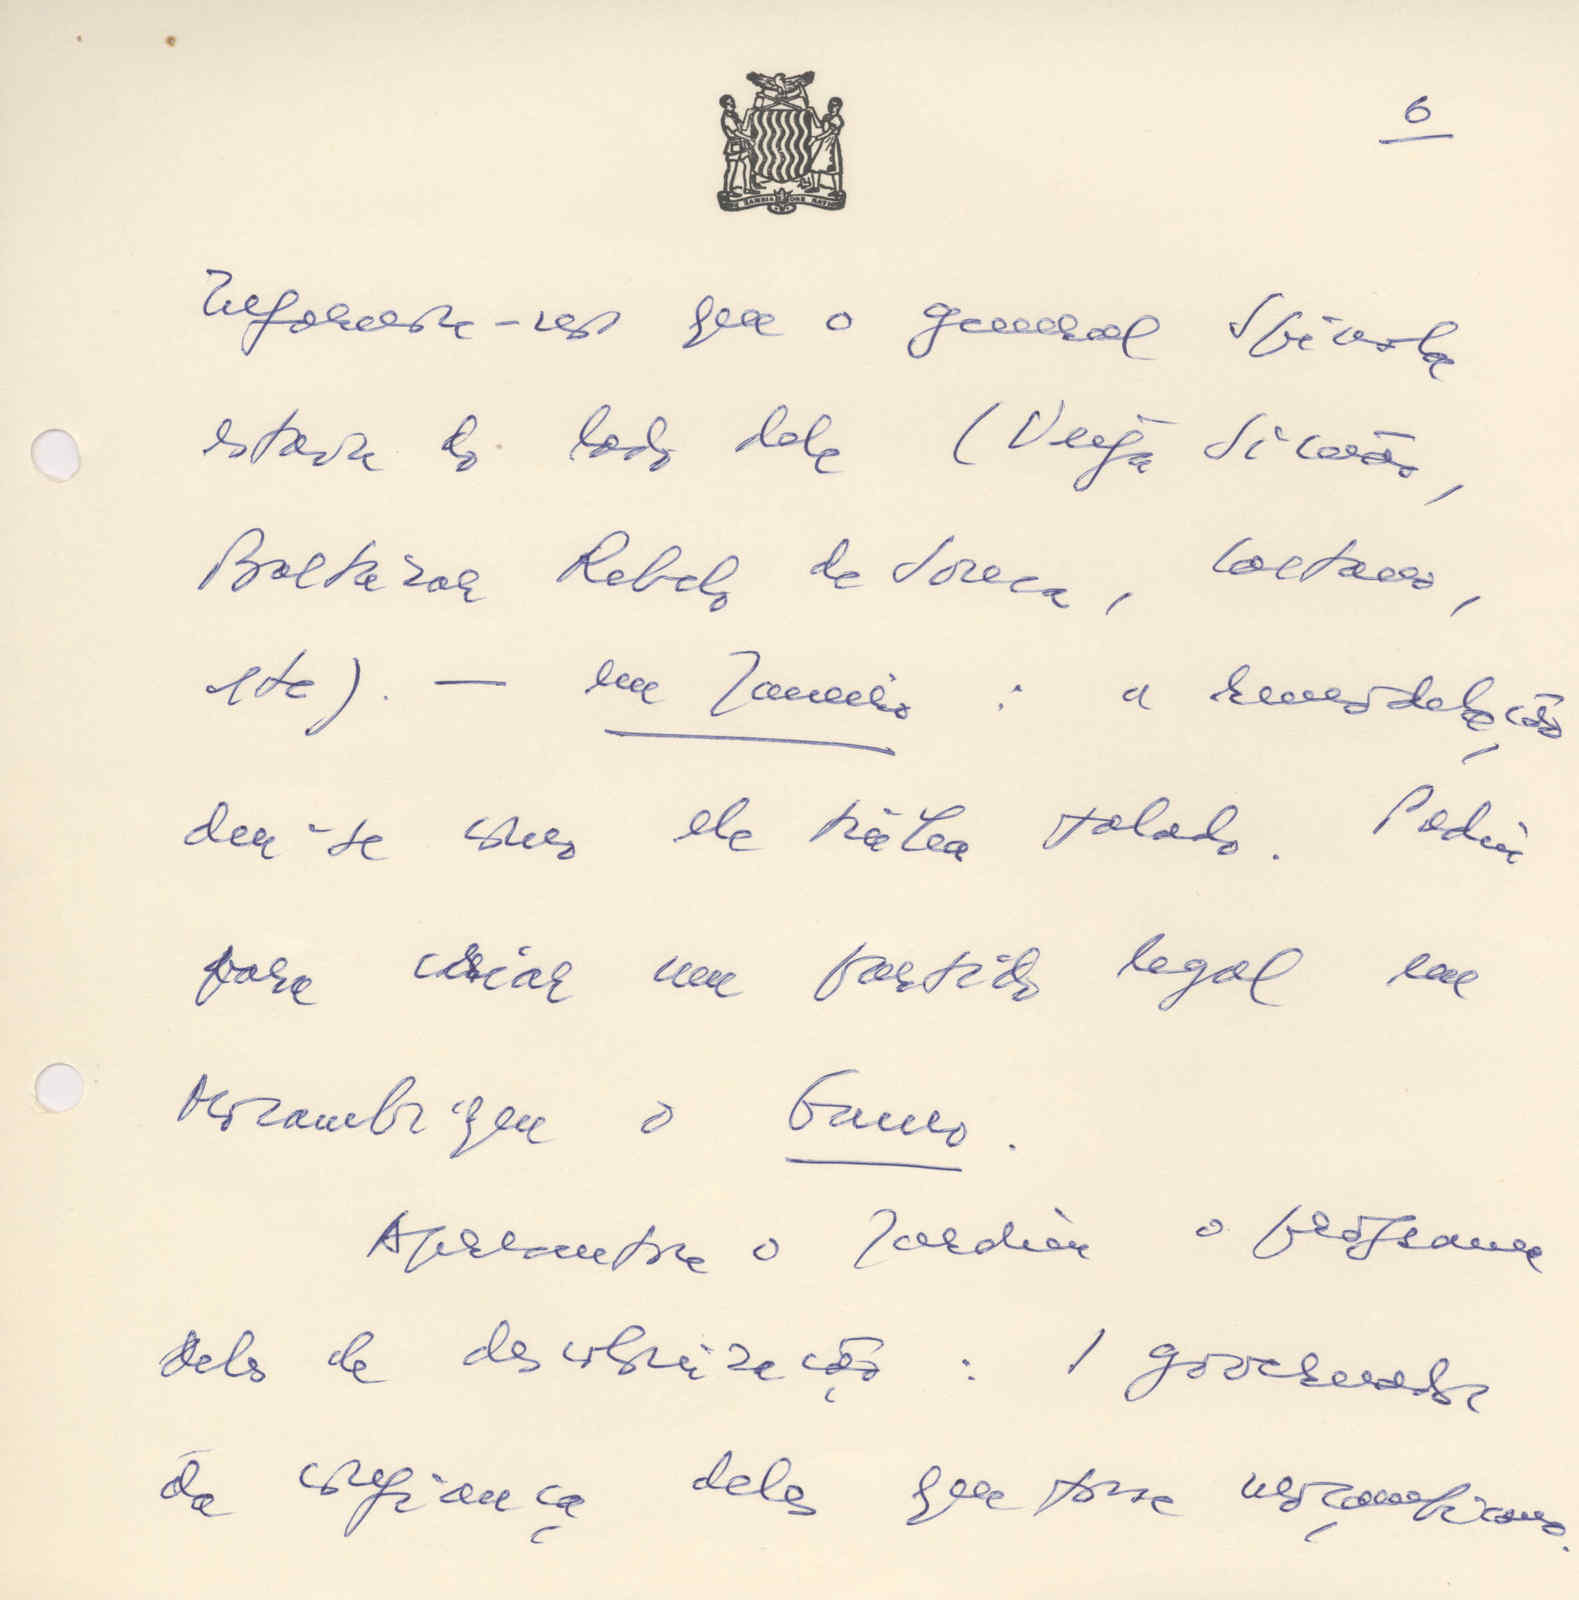 6
Informou-nos que o general Spínola
estava do lado dele (Veiga Simão,
Baltazar Rebelo de Sousa, Caetano,
etc). — em Janeiro : a remodelação
deu-se como ele tinha falado. Pediu
para criar um partido legal em
Moçambique o Gumo.
Apresentou o Jardim o programa
dele de descolonização : 1 governador
da confiança deles que fosse moçambicano.